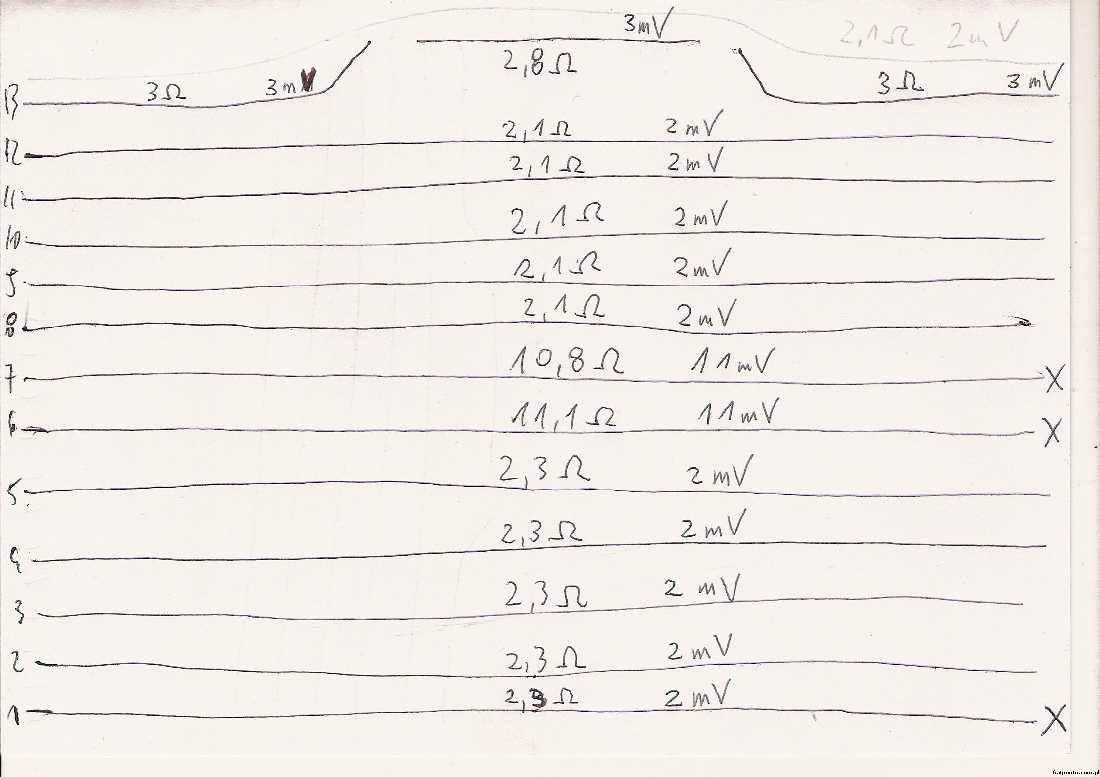 3mV
2,1Ω 2mV
2,8Ω
13 3Ω 3mV 3Ω 3mV
12 2,1Ω 2mV
11 2,1Ω 2mV
10 2,1Ω 2mV
9 2,1Ω 2mV
8 2,1Ω 2mV
7 10,8Ω 11mV X
6 11,1Ω 11mV X
5 2,3Ω 2mV
4 2,3Ω 2mV
3 2,3Ω 2mV
2 2,3Ω 2mV
1 2,3Ω 2mV X